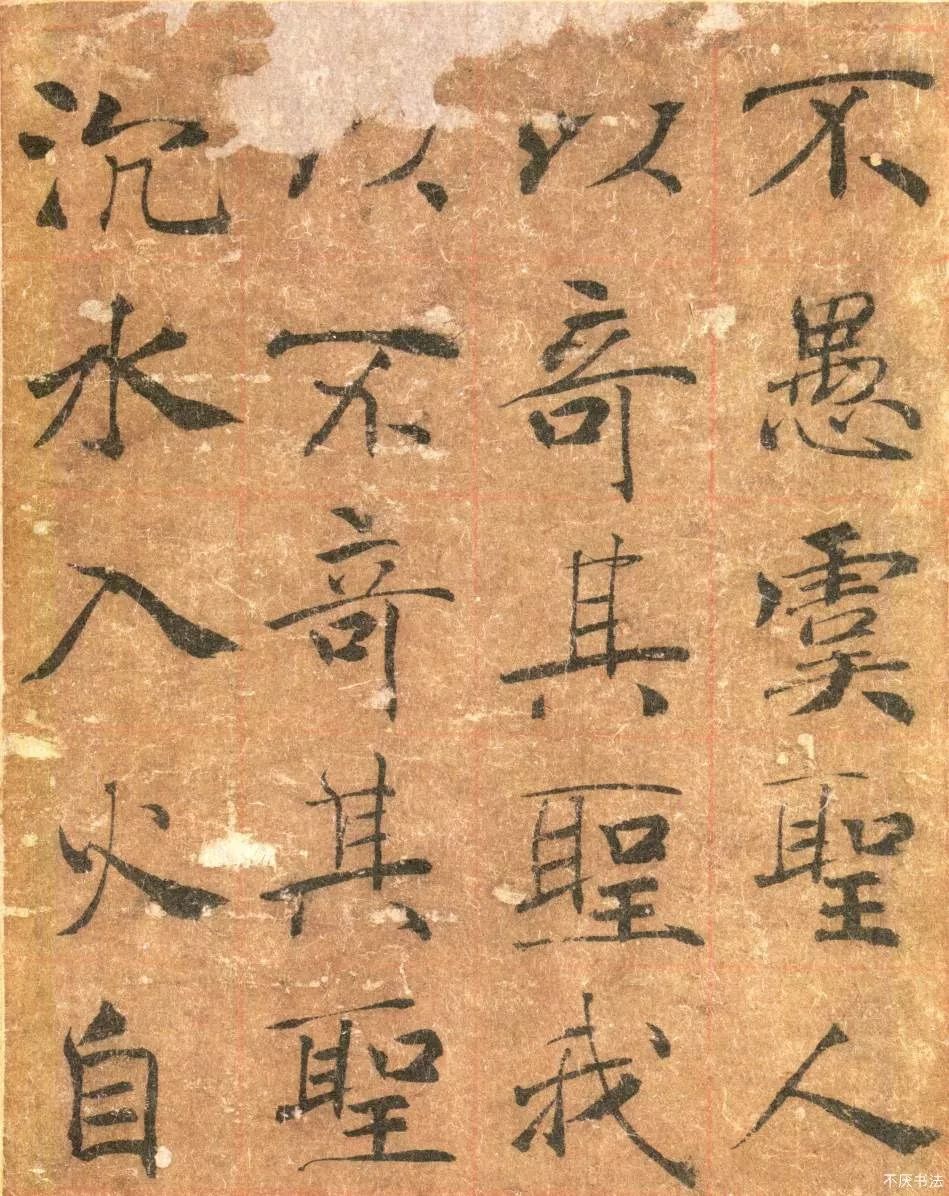 不愚虞聖人
以竒其聖我
以不竒其聖
沉水入火自
不厌书法